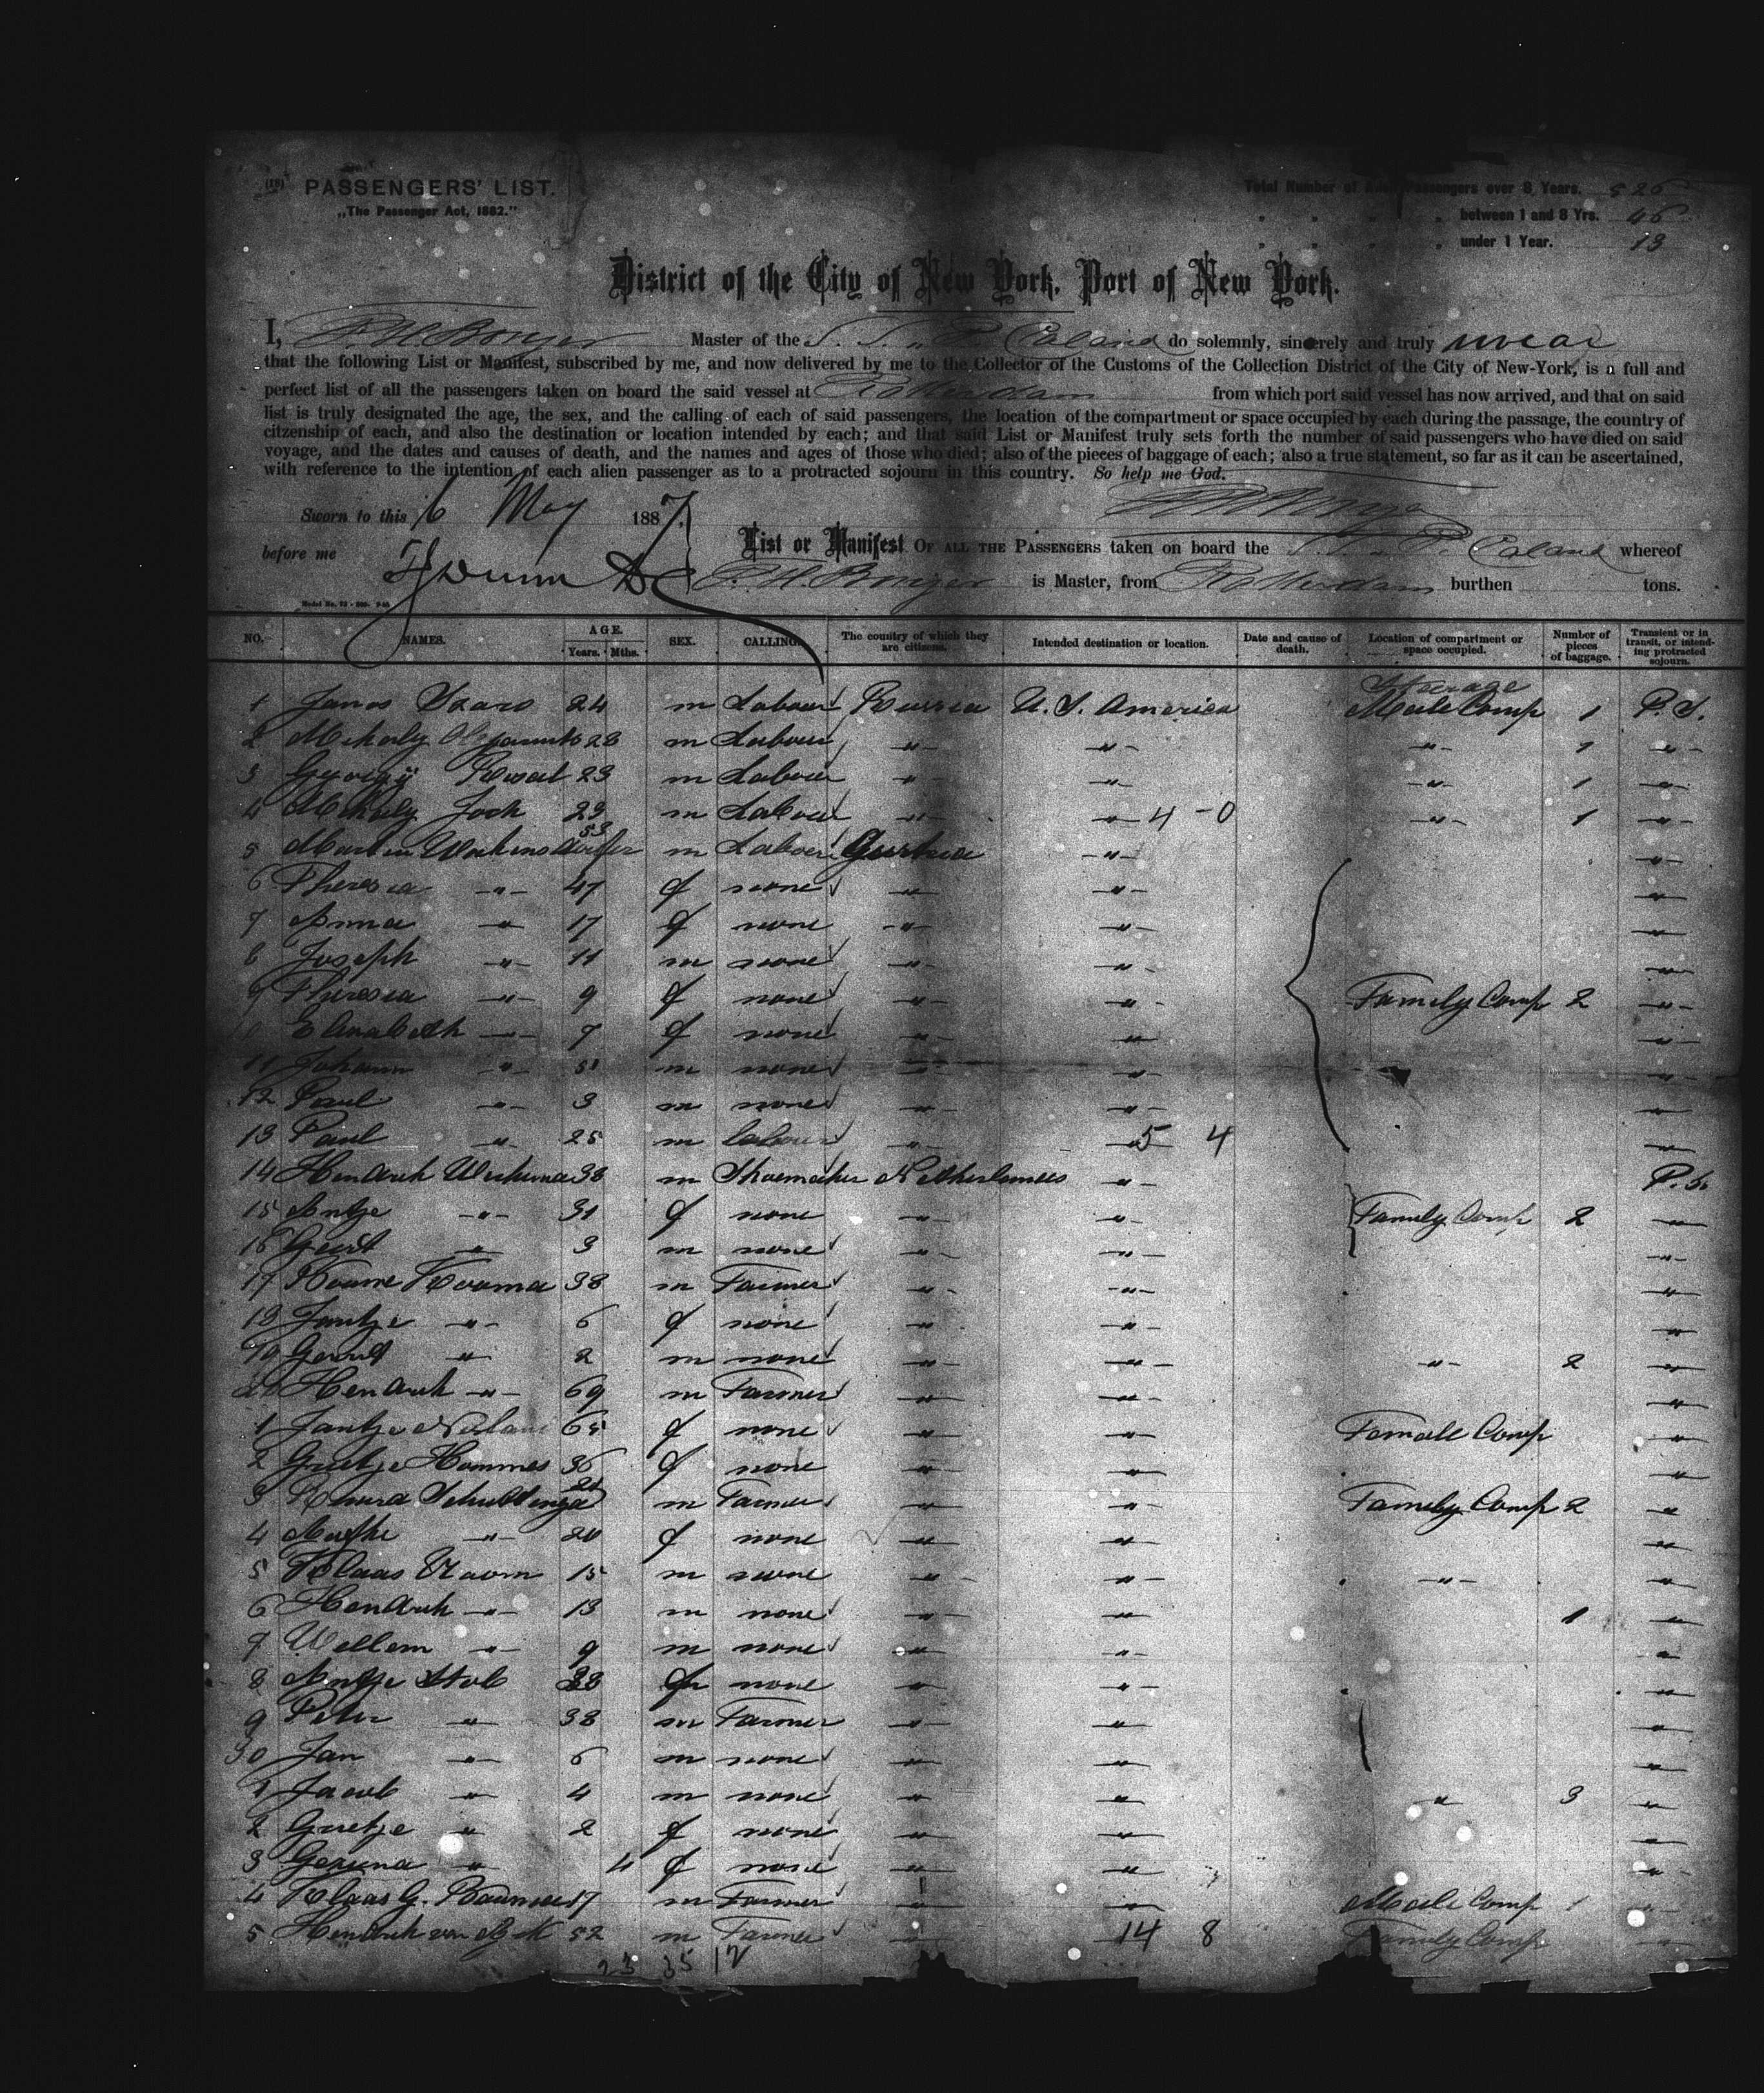 PASSENGERS' LIST.
„The Passenger Act, 1882."
Total Number of Passengers over 8 Years. 526
" " " " between 1 and 8 Yrs. 46
" " " " under 1 Year. 13
District of the City of New York, Port of New York.
I, P. H. Bonjer Master of the S. S. „P. Caland do solemnly, sincerely and truly swear
that the following List or Manifest, subscribed by me, and now delivered by me to the Collector of the Customs of the Collection District of the City of New-York, is a full and
perfect list of all the passengers taken on board the said vessel at Rotterdam from which port said vessel has now arrived, and that on said
list is truly designated the age, the sex, and the calling of each of said passengers, the location of the compartment or space occupied by each during the passage, the country of
citzenship of each, and also the destination or location intended by each; and that said List or Manifest truly sets forth the number of said passengers who have died on said
voyage, and the dates and causes of death, and the names and ages of those who died; also of the pieces of baggage of each; also a true statement, so far as it can be ascertained,
with reference to the intention of each alien passenger as to a protracted sojourn in this country. So help me God.
Sworn to this 6 May 1887
before me
List or Manifest OF ALL THE PASSENGERS taken on board the S. S. „P. Caland whereof
P. H. Bonjer is Master, from Rotterdam burthen tons.
NO. NAMES. AGE. Years. Mths. SEX. CALLING. The country of which they are citizens. Intended destination or location. Date and cause of death. Location of compartment or space occupied. Number of pieces of baggage. Transient or in transit, or intending protracted sojourn.
Steerage
1 Janos 24 m Labour Russia U. S. America Male Comp 1 P. S.
2 Mihaly 28 m Labour " " " 1 "
3 23 m Labour " " " 1 "
4 Mihaly 23 m Labour " " 4 - 0 " 1 "
5 Martin 53 m Labour Austria " "
6 Theresia " 47 f none " " "
7 Anna " 17 f none " " "
8 Joseph " 11 m none " " "
9 Theresia " 9 f none " " Family Comp 2 "
Elisabeth " 7 f none " " "
11 Johann " m none " " "
12 Paul " 3 m none " " "
13 Paul " 25 m labour " " 5 4 "
14 Hendrik 38 m Shoemaker Netherlands " P. S.
15 Antje " 31 f none " " Family Comp 2 "
16 Geert " 3 m none " " "
17 38 m Farmer " " "
18 Jantje " 6 f none " " "
19 Gerrit " 2 m none " " " 2 "
20 Hendrik " 69 m Farmer " " "
1 Jantje 65 f none " " Female Comp "
2 Grietje Hommes 36 f none " " "
3 m Farmer " " Family Comp 2 "
4 " 20 f none " " "
5 Klaas 15 m none " " " "
6 Hendrik " 13 m none " " 1 "
7 Willem " 9 m none " " "
8 Antje Stob f none " " "
9 Peter " 38 m Farmer " " "
30 Jan " 6 m none " " "
1 Jacob " 4 m none " " " 3 "
2 Grietje " 2 f none " " "
3 " 4 f none " " "
4 Klaas G. 17 m Farmer " " Male Comp 1 "
5 Hendrik van 52 m Farmer " 14 8 Family Comp "
23 35 12